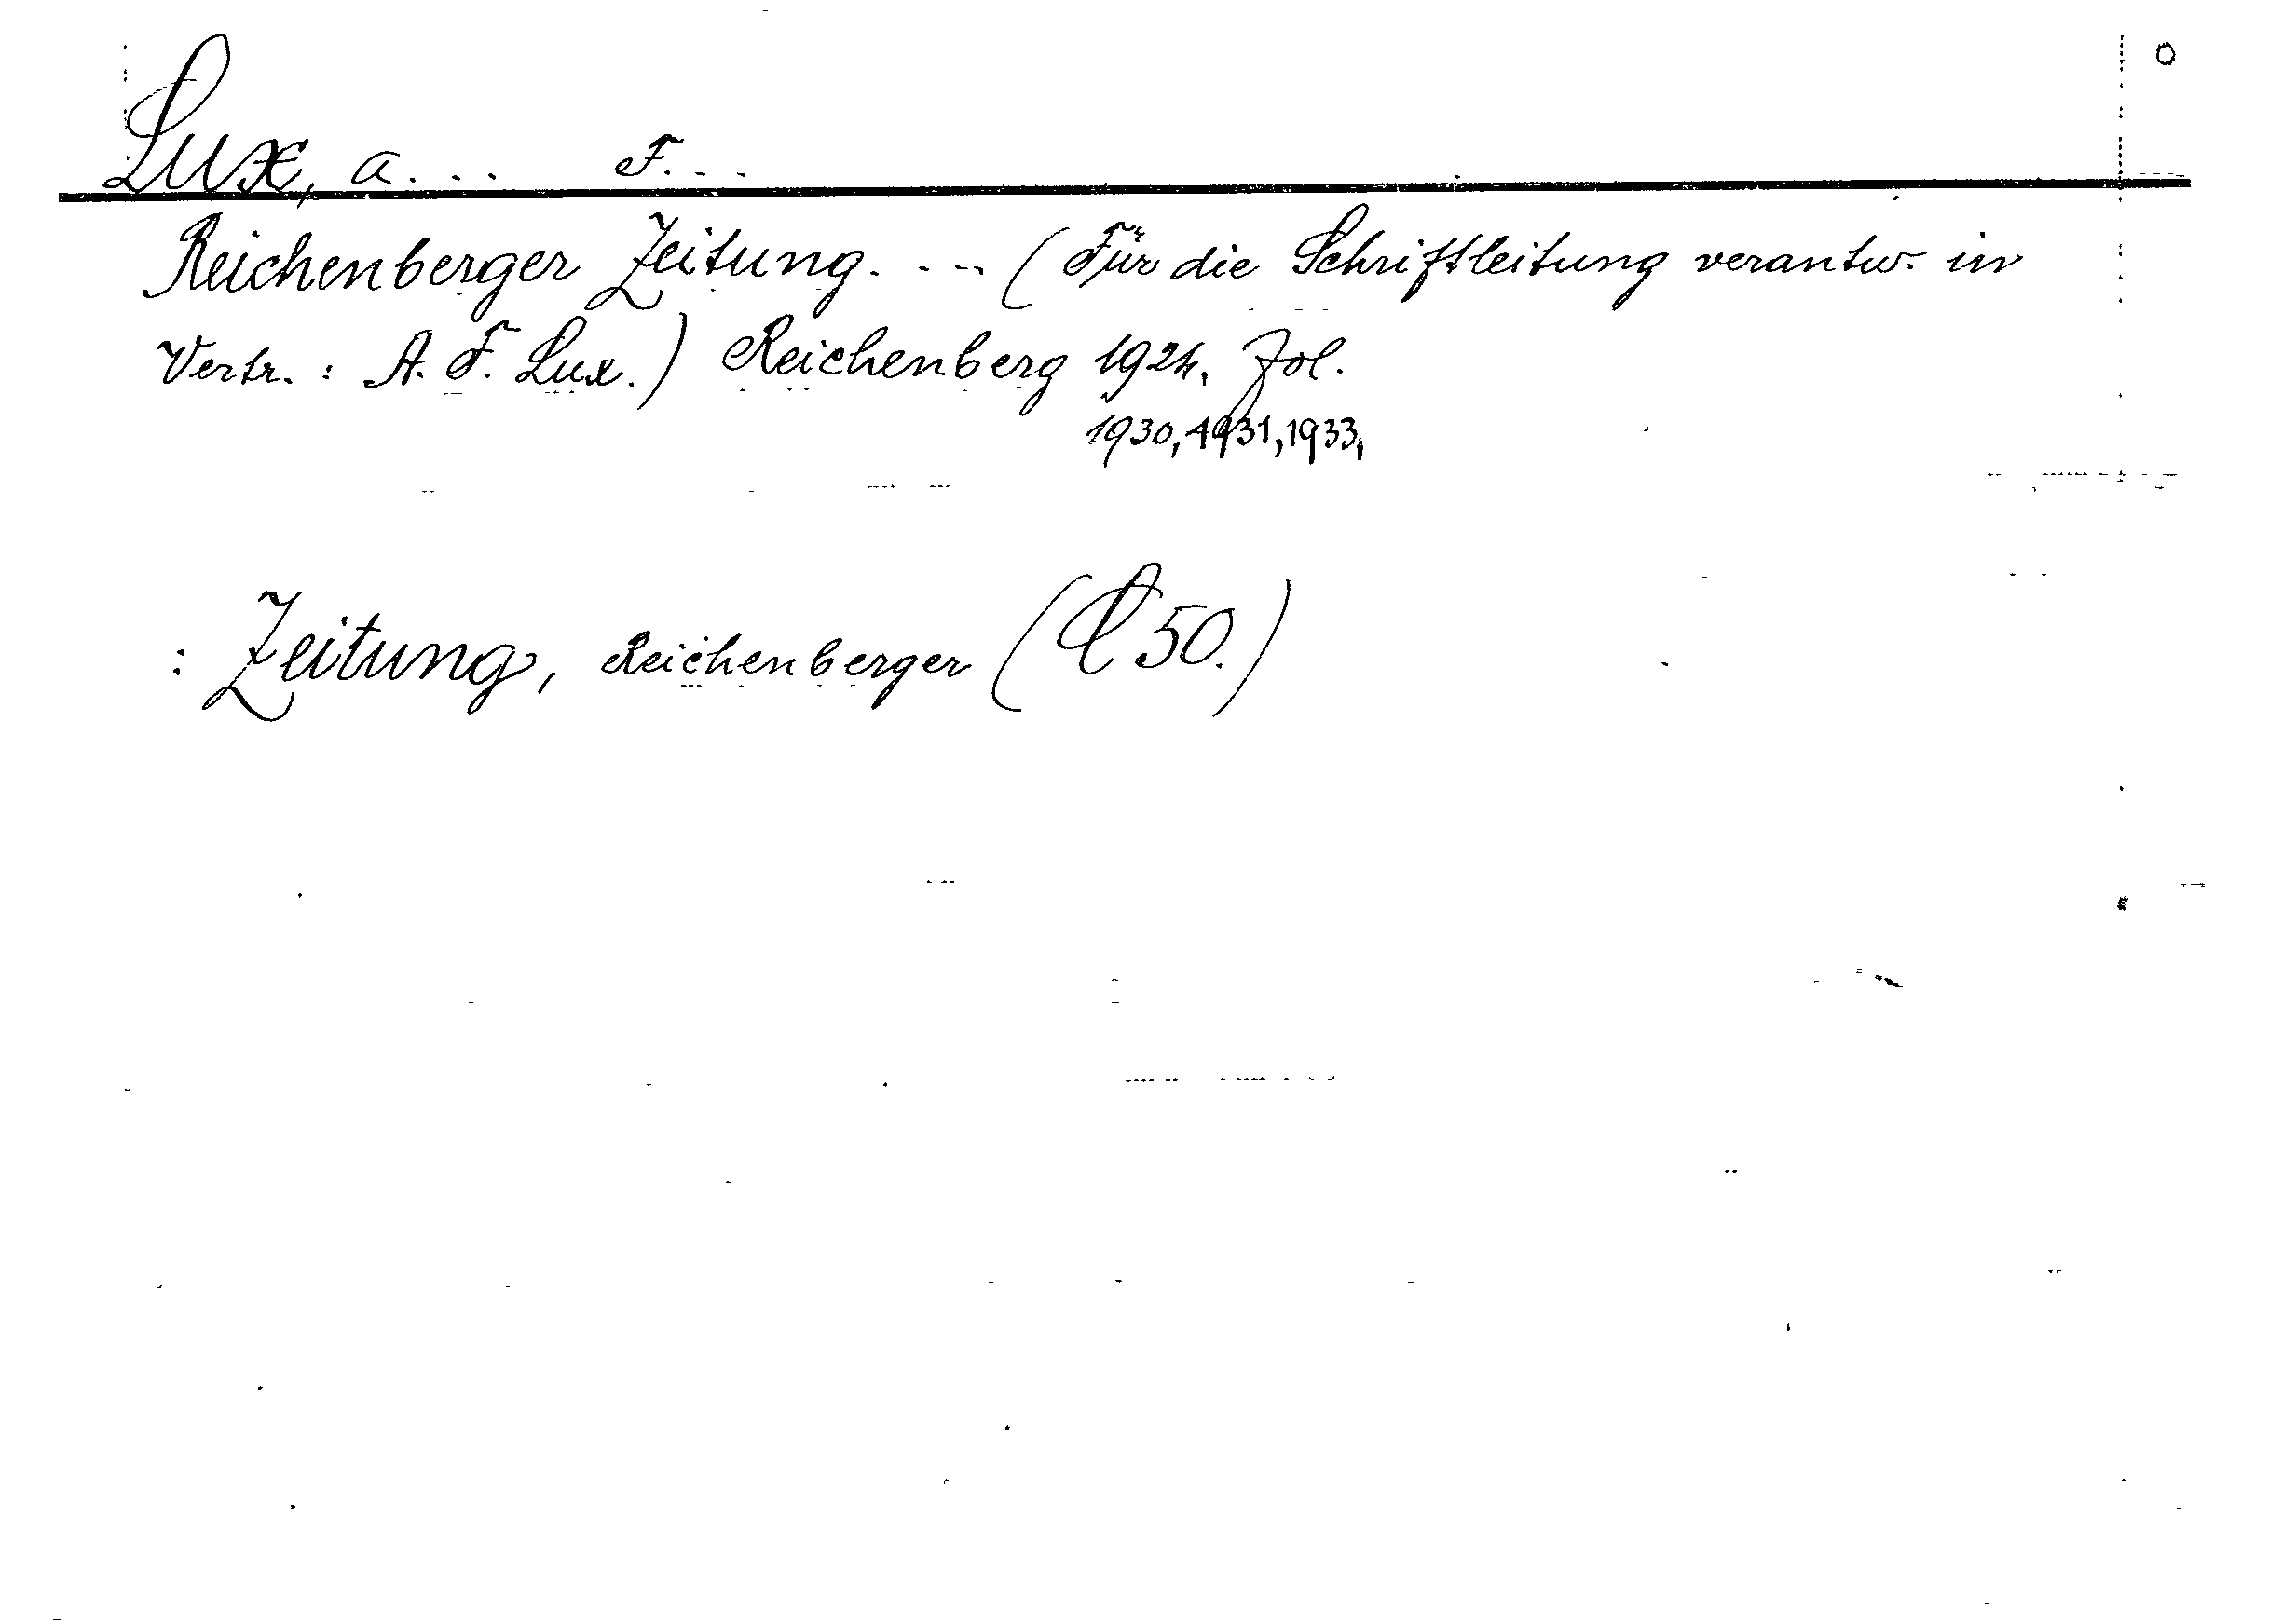 Lux, A... F...
Reichenberger Zeitung. ... (Für die Schriftleitung verantw. in
Vertr. : A. F. Lux.) Reichenberg 1924. Fol.
1930, 1931, 1933,
: Zeitung, Reichenberger ( 50.)